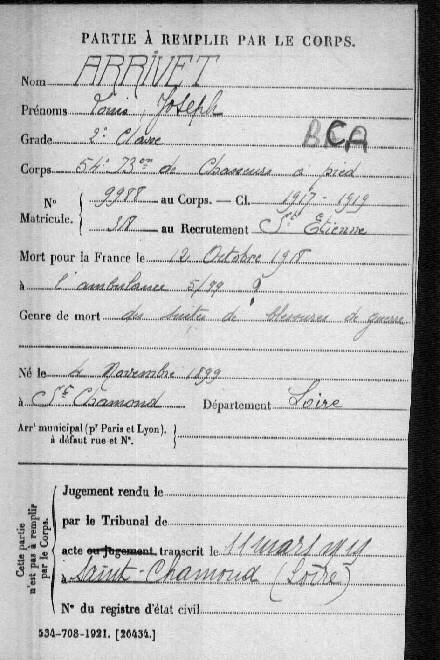 PARTIE À REMPLIR PAR LE CORPS.
Nom ARRIVET
Prénoms Louis, Joseph
Grade 2e Classe
BCA
Corps 54e Bon de Chasseurs à pied
N° Matricule. 9988 au Corps. — Cl. 1917 - 1919
318 au Recrutement St Etienne
Mort pour la France le 12 Octobre 1918
à l'ambulance 5/99
Genre de mort des suites de blessures de guerre
Né le 4 Novembre 1899
à St Chamond Département Loire
Arrt municipal (pr Paris et Lyon), à défaut rue et N°.
Cette partie n'est pas à remplir par le Corps.
Jugement rendu le
par le Tribunal de
acte ou jugement transcrit le 11 mars
à Saint-Chamond (Loire)
N° du registre d'état civil
534-708-1921. [26434.]